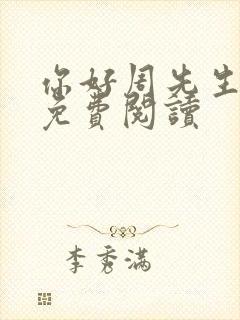 你好周先生
免費閱讀
李秀滿